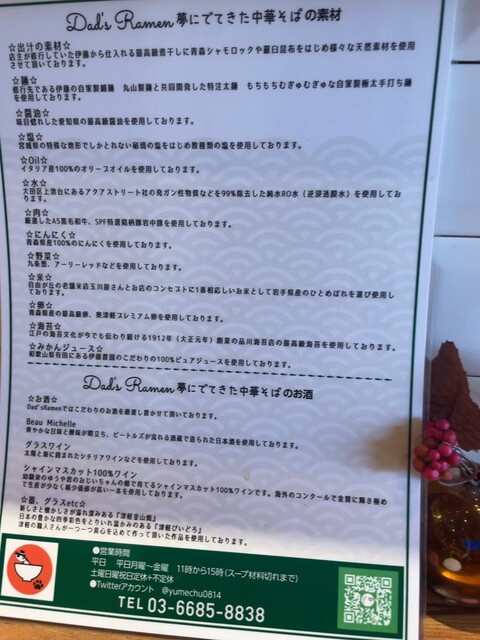 Dad's Ramen 夢にでてきた中華そばの素材
☆出汁の素材☆
店主が修行していた伊藤から仕入れる最高級煮干しに青森シャモロックや羅臼昆布をはじめ様々な天然素材を使用
させて頂いております。
☆麺☆
修行先である伊藤の自家製細麺 丸山製麺と共同開発した特注太麺 もちもちむぎゅむぎゅな自家製極太手打ち麺
を使用しております。
☆醤油☆
味目惚れした愛知県の最高級醤油を使用しております。
☆塩☆
宮城県の特殊な地形でしかとれない秘境の塩をはじめ数種類の塩を使用しております。
☆Oil☆
イタリア産100%のオリーブオイルを使用しております。
☆水☆
大田区上池台にあるアクアストリート社の発ガン性物質などを99%除去した純水RO水(逆浸透膜水)を使用してお
ります。
☆肉☆
厳選したA5黒毛和牛、SPF特選銘柄豚岩中豚を使用しております。
☆にんにく☆
青森県産100%のにんにくを使用しております。
☆野菜☆
九条葱、アーリーレッドなどを使用しております。
☆米☆
自由が丘の老舗米店玉川屋さんとお店のコンセプトに1番相応しいお米として岩手県産のひとめぼれを選び使用し
ております。
☆卵☆
青森県産の最高級卵、奥津軽プレミアム卵を使用しております。
☆海苔☆
江戸の海苔文化が今でも伝わり続ける1912年(大正元年)創業の品川海苔店の最高級海苔を使用しております。
☆みかんジュース☆
和歌山県有田にある伊藤農園のこだわりの100%ピュアジュースを使用しております。
Dad's Ramen 夢にでてきた中華そばのお酒
☆お酒☆
Dad'sRamenではこだわりのお酒を厳選し置かせて頂いております。
Beau Michelle
爽やかな甘味と酸味が際立ち、ビートルズが流れる酒蔵で造られた日本酒を使用しております。
グラスワイン
太陽と海に囲まれたシチリアワインなどを使用しております。
シャインマスカット100%ワイン
幼馴染のゆうや君のおじいちゃんの畑で育てるシャインマスカット100%ワインです。海外のコンクールで金賞に輝き極め
て生産が少なく希少価値が高い一本を使用しております。
☆器、グラスetc☆
新しさと懐かしさが溢れ深みある『津軽金山焼』
日本の豊かな四季彩色をとりいれ温かみのある『津軽びいどろ』
津軽の職人さんが一つ一つ真心を込めて作って頂いた作品を使用しております。
●営業時間
平日 平日月曜〜金曜 11時から15時(スープ材料切れまで)
土曜日曜祝日定休+不定休
●Twitterアカウント @yumechu0814
TEL 03-6685-8838